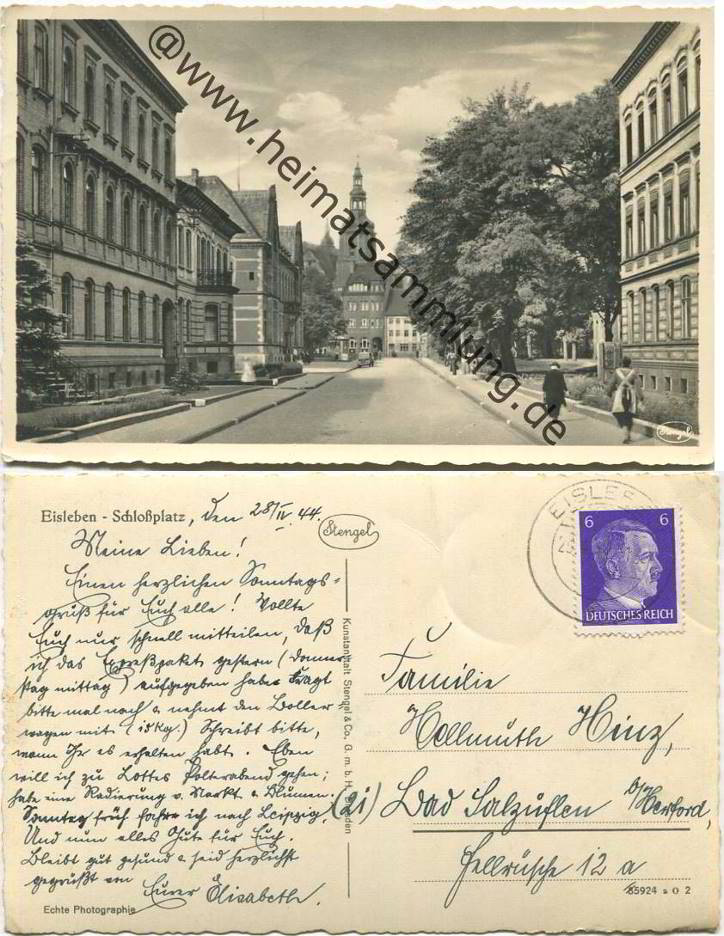 @www.heimatsammlung.de
Stengel
Eisleben - Schloßplatz, den 28/IV. 44.
Stengel
Meine Lieben!
Einen herzlichen Sonntags-
gruß für Euch alle! Wollte
Euch nur schnell mitteilen, daß
ich das Expreßpaket gestern (Donners
tag mittag) aufgegeben habe. Fragt
bitte mal nach u. nehmt den Boller-
wagen mit (10kg.) Schreibt bitte,
wann Ihr es erhalten habt. Eben
will ich zu Lottes Polterabend gehen;
habe eine Radierung v. Markt u. Blumen.
Sonntag früh fahre ich nach Leipzig.
Und nun alles Gute für Euch.
Bleibt gut gesund u. seid herzlichst
gegrüßt von Eurer Elisabeth.
Echte Photographie
Kunstanstalt Stengel & Co. G. m. b. H. Dresden
EISLEBEN
6 6
DEUTSCHES REICH
Familie
Hellmuth Hinz,
(21) Bad Salzuflen b/Herford,
12 a
85924 a O 2